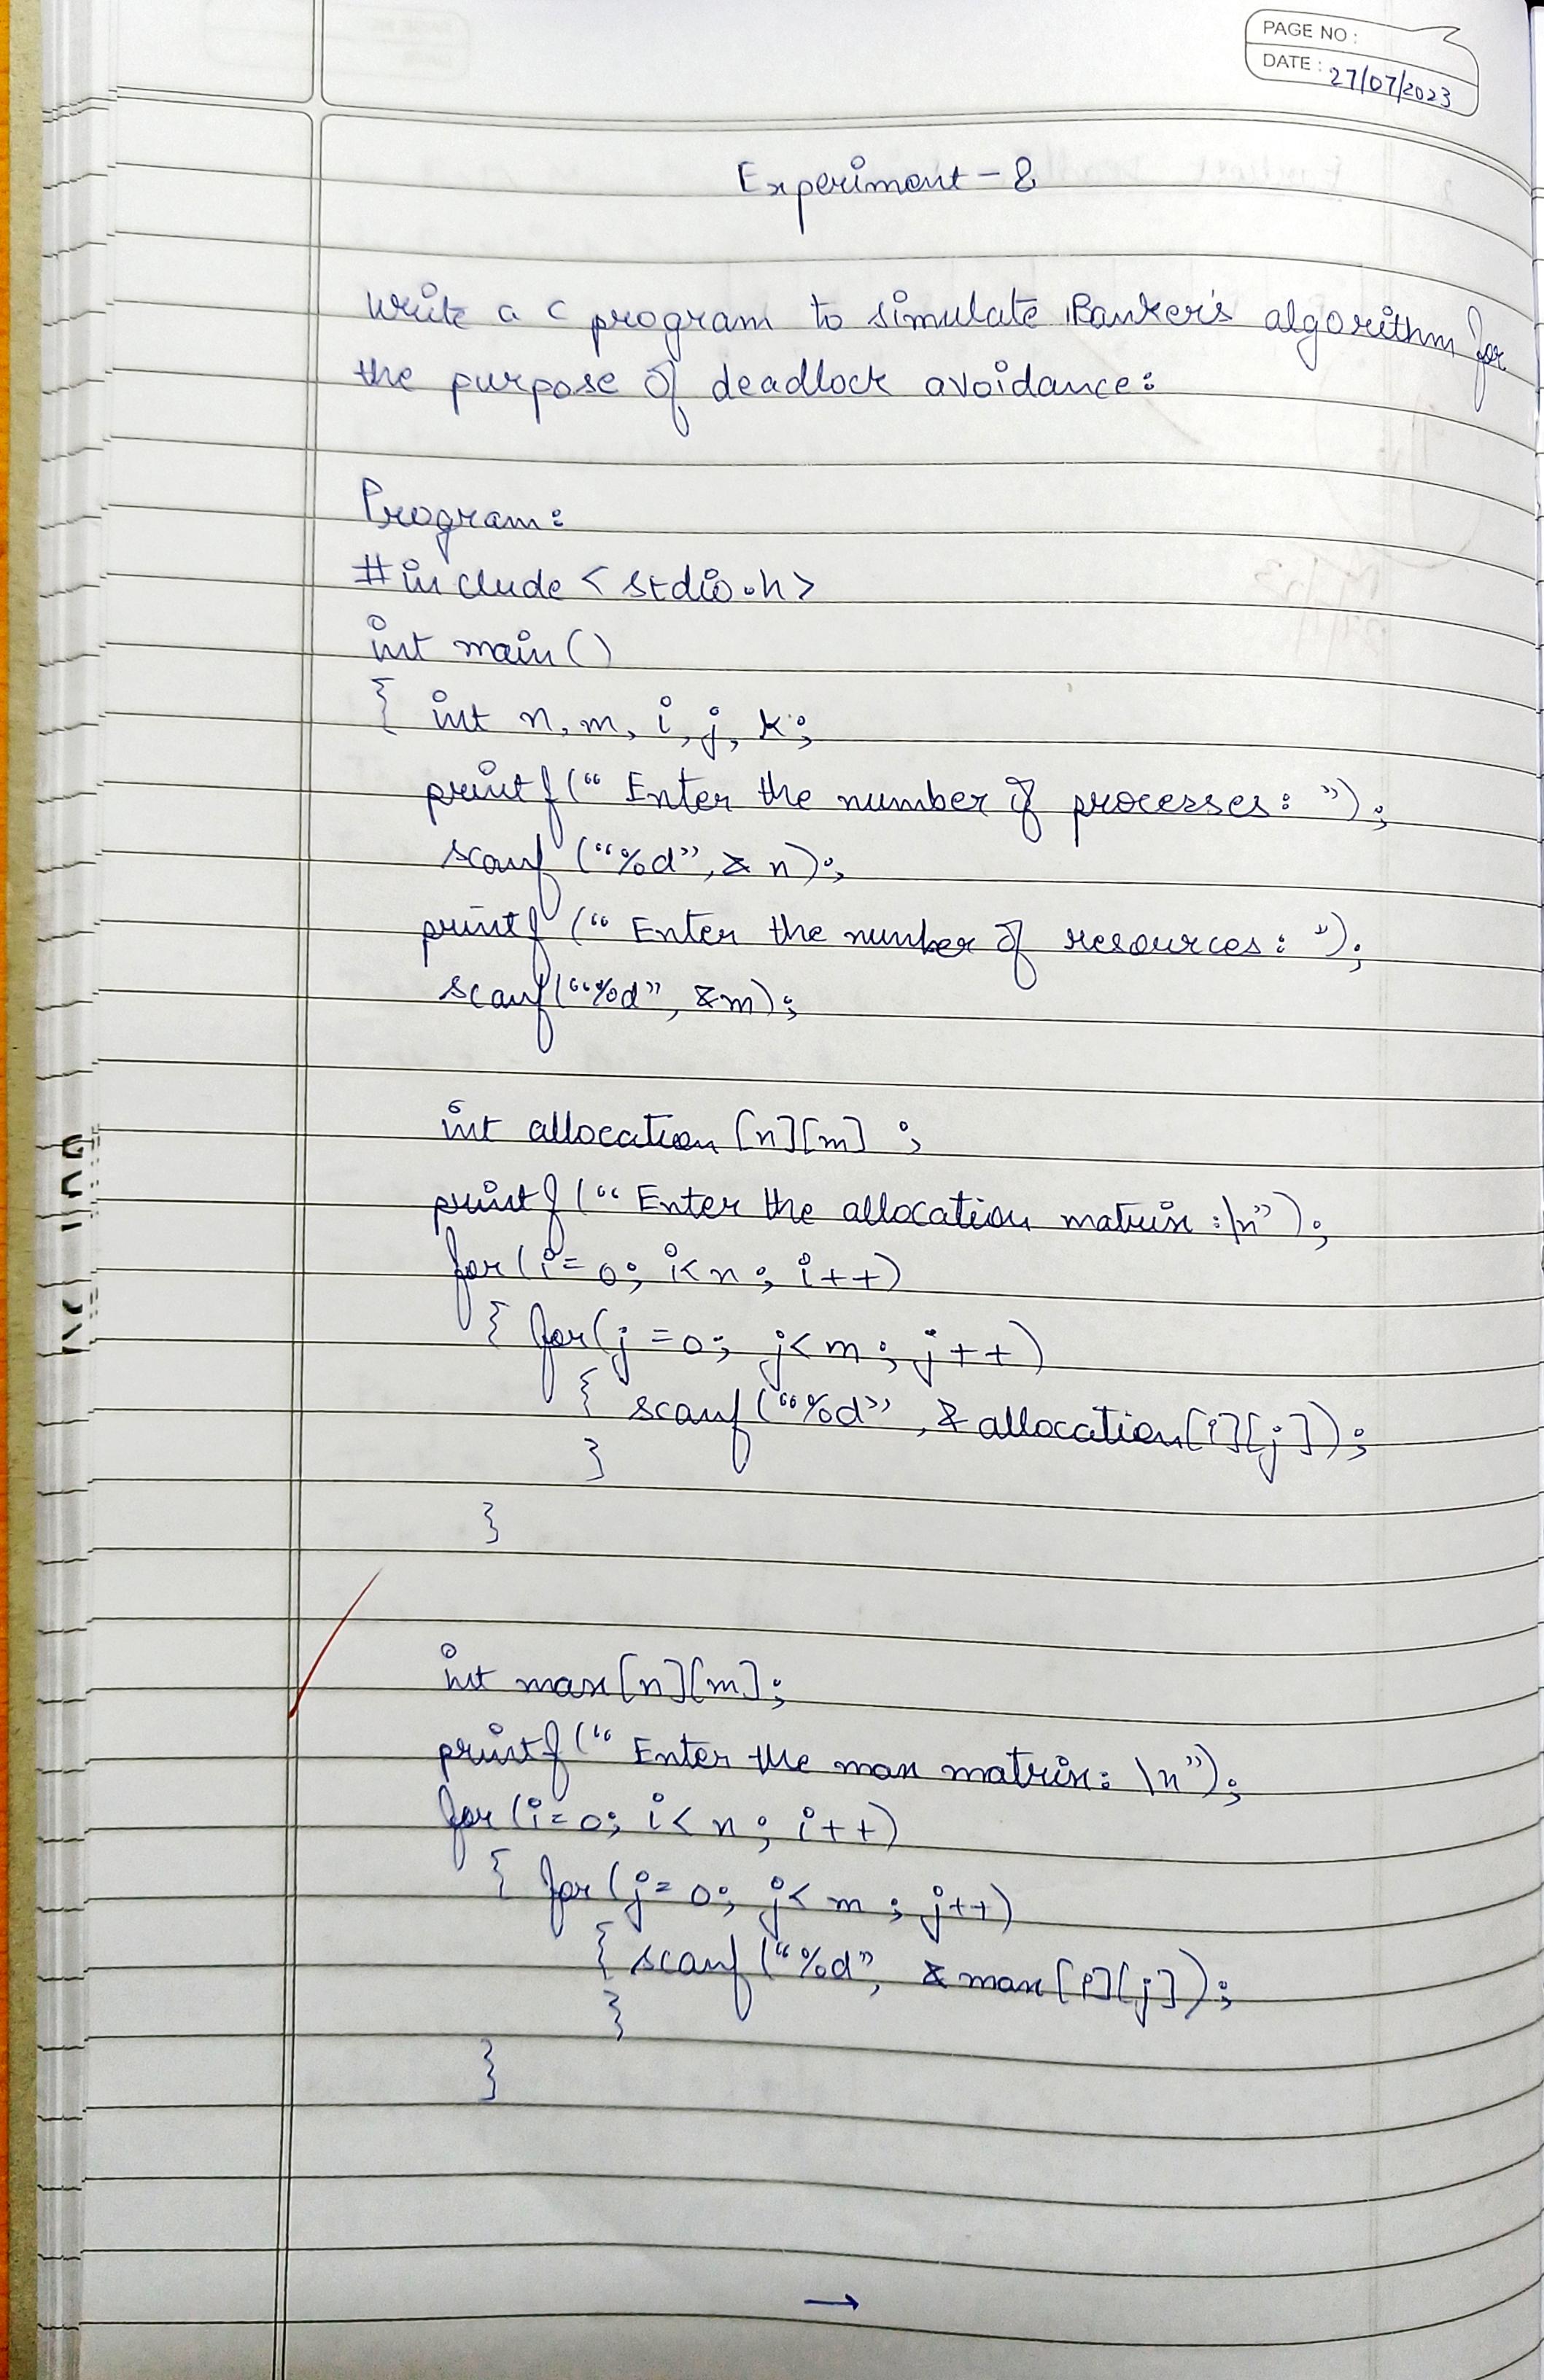 PAGE NO :
DATE : 27/07/2023
Experiment - 8
Write a C program to simulate Banker's algorithm for
the purpose of deadlock avoidance:
Program:
#include <stdio.h>
int main()
{ int n, m, i, j, k;
printf(" Enter the number of processes: ");
scanf ("%d", & n);
printf (" Enter the number of resources: ");
scanf("%d", &m);
int allocation [n][m] ;
printf (" Enter the allocation matrix :\n");
for(i=0; i<n; i++)
{ for(j=0; j<m; j++)
{ scanf("%d", & allocation[i][j]);
}
}
int max[n][m];
printf(" Enter the max matrix: \n");
for(i=0; i<n; i++)
{ for(j=0; j<m; j++)
{ scanf("%d", &max[i][j]);
}
}
→